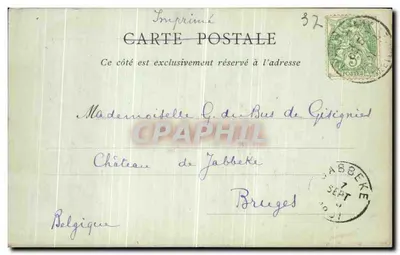 Imprimé
32
CARTE POSTALE
Ce côté est exclusivement réservé à l'adresse
Mademoiselle G. du Bus de Gisignies
CPARAMA.COM
Château de Jabbeke
Bruges
Belgique
JABBEKE
7
SEPT
1901